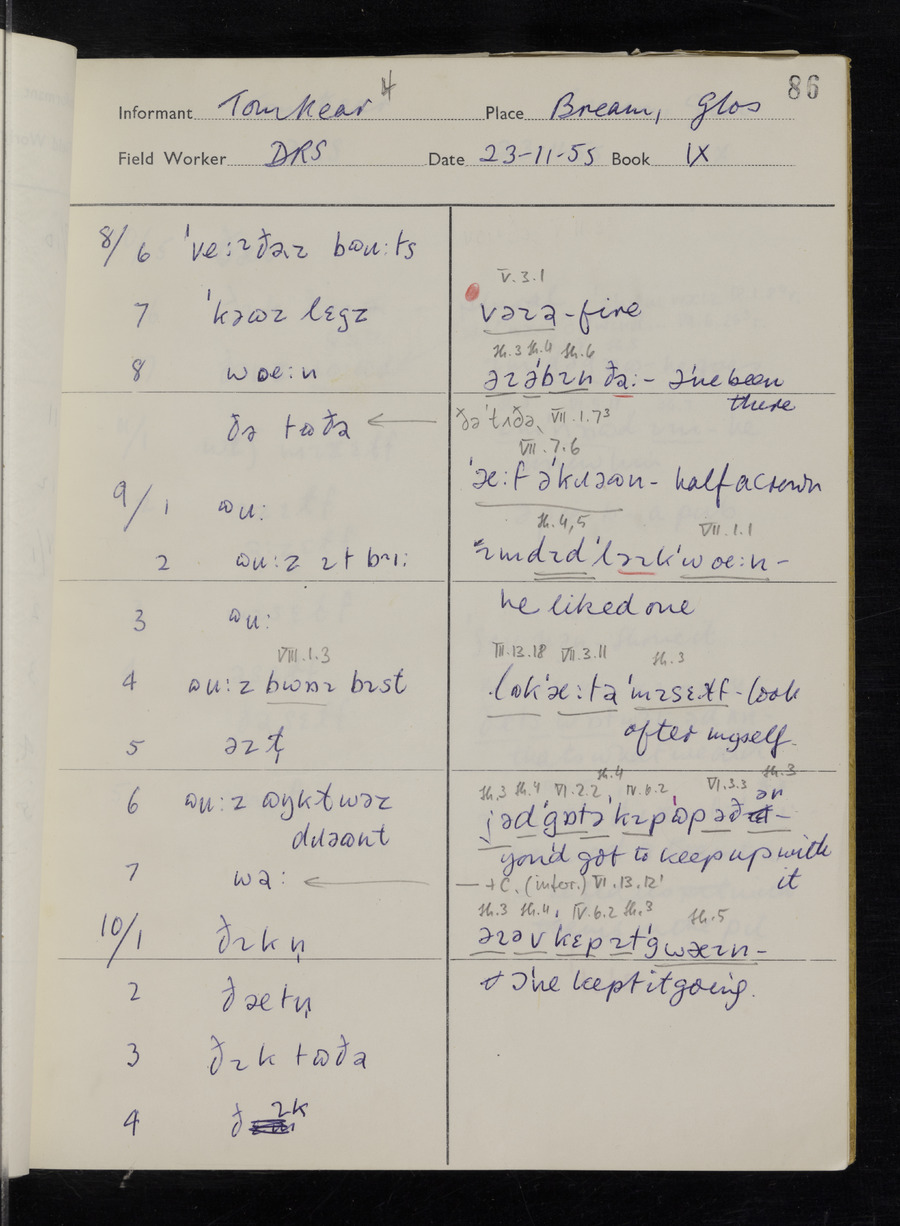 86
Informant Tom Kear 4 Place Bream, Glos
Field Worker DRS Date 23-11-55 Book IX
8/6 ˈveːɪðəɪ bəuːts
7 ˈkəωz lɛgz
8 woeːn
ðə tωðə ←
9/1 əuː
2 əuːz ɪt biː
3 əuː
VIII.1.3
4 əuːz bɪst
5 əɪt̩
6 əuːz
dɹəωnt
7 wəː ←
10/1 ðɪkn̩
2 ðætn̩
3 ðɪk tωðə
4 ðɪk
V.3.1
vəɪə - fire
SH.3 SH.4 SH.6
əɪəˈbɪn ðəː - I've been
there
ðəˈtʌðə, VII.1.7³
VII.7.6
ˈæːf əˈkɹəωn - half a crown
SH.4,5 VII.1.1
ˈləɪkˈwoeːn -
he liked one
III.13.18 VII.3.11 SH.3
lωkˈæːtəˈmɪsɛɫf - look
after myself.
SH.3 SH.4 VI.2.2 SH.4 IV.6.2 VI.3.3 SH.3
jədˈgɒtəˈkɪpˈωpəðən -
you'd got to keep up with
it
— +C. (infor.) VI.13.12¹
SH.3 SH.4 IV.6.2 SH.3 SH.5
əɪəv kɛpɪtˈgwæɪn -
I've kept it going.